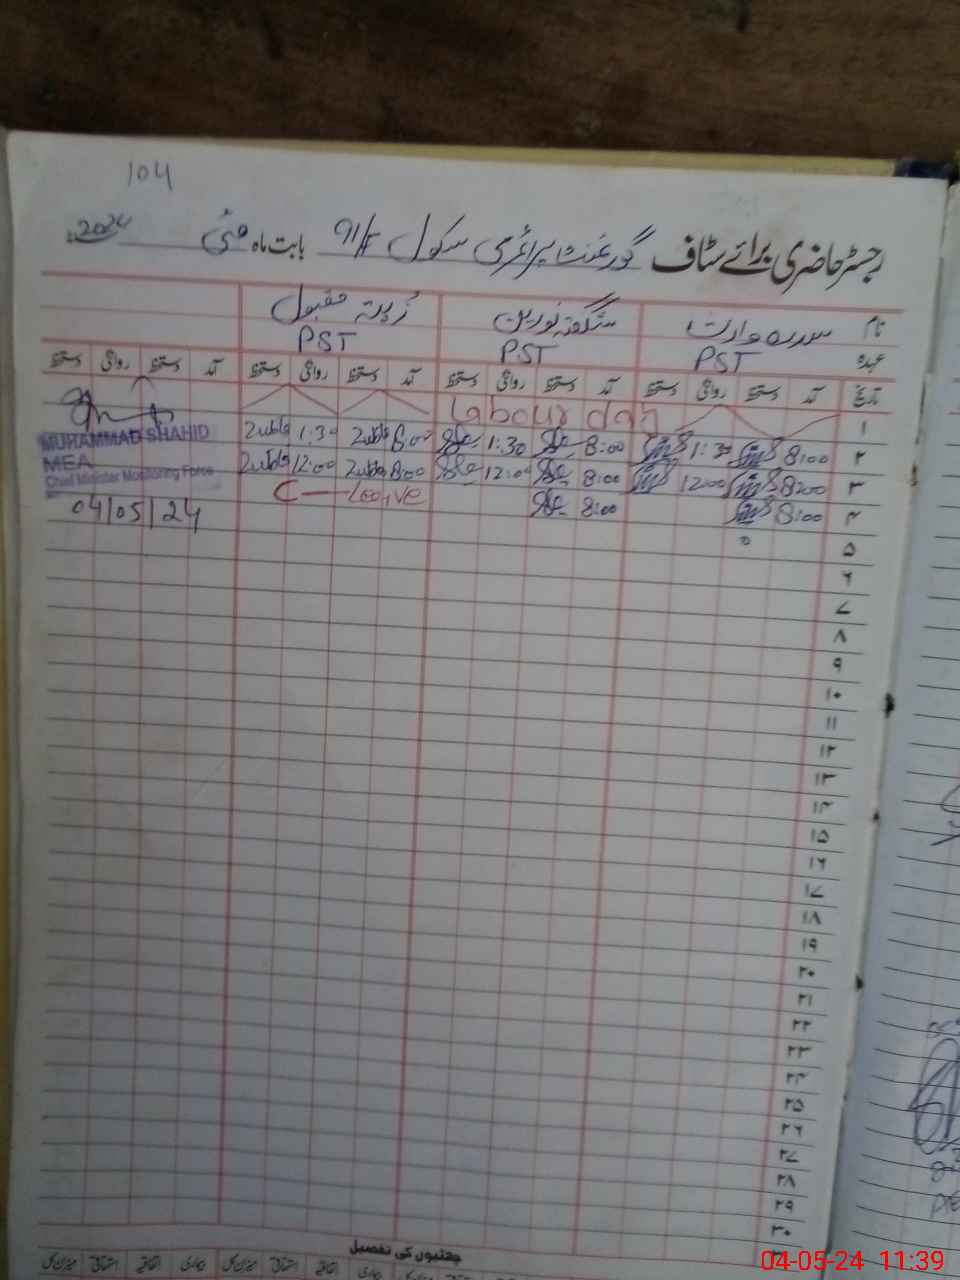 104
رجسٹر حاضری برائے سٹاف گورنمنٹ پرائمری سکول 91/F بابت ماہ مئی 2024ء
نام سدرہ وارث شگفتہ نورین زبیدہ مقبول
عہدہ PST PST PST
تاریخ آمد دستخط روانگی دستخط آمد دستخط روانگی دستخط آمد دستخط روانگی دستخط آمد دستخط روانگی دستخط
۱ Labour day
۲ 8:00 1:30 8:00 1:30 8:00 1:30
MUHAMMAD SHAHID
۳ 8:00 12:00 8:00 12:00 8:00 12:00
MEA
Chief Minister Monitoring Force
۴ 8:00 8:00 C — Leave
04/05/24
۵
۶
۷
۸
۹
۱۰
۱۱
۱۲
۱۳
۱۴
۱۵
۱۶
۱۷
۱۸
۱۹
۲۰
۲۱
۲۲
۲۳
۲۴
۲۵
۲۶
۲۷
۲۸
۲۹
۳۰
چھٹیوں کی تفصیل
بیماری اتفاقیہ استحقاقی میزان کل بیماری اتفاقیہ استحقاقی میزان کل
04-05-24 11:39